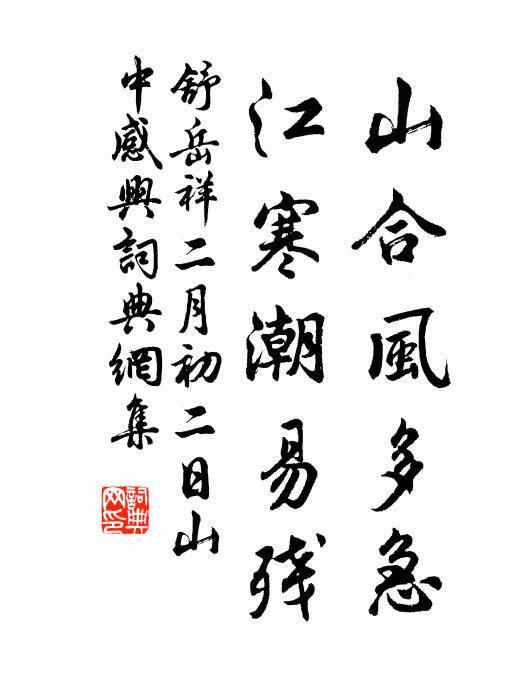 山合風多急
江寒潮易殘
舒岳祥二月初二日山
中感興詞典網集
詞典
网印